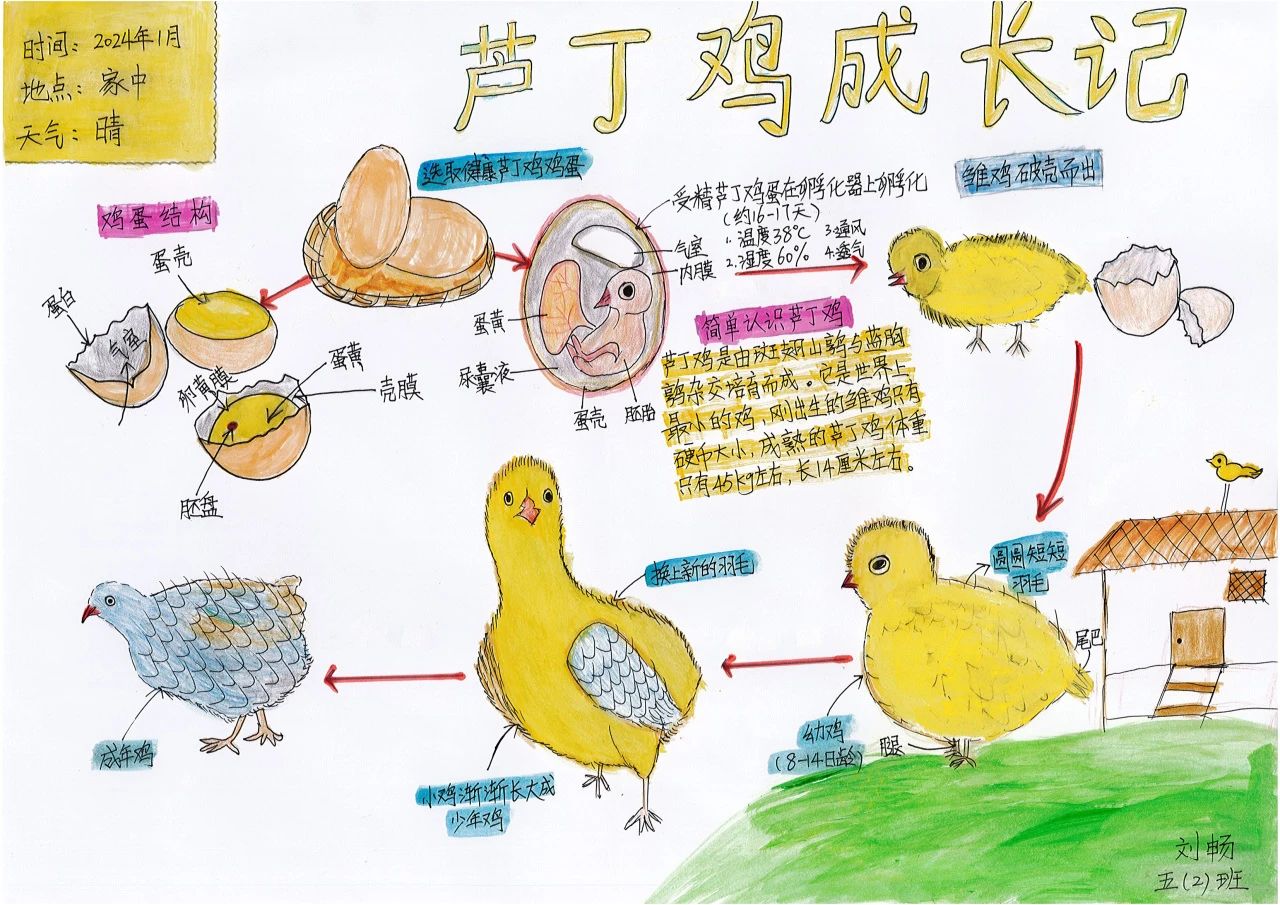 时间：2024年1月
地点：家中
天气：晴
芦丁鸡成长记
选取健康芦丁鸡鸡蛋
鸡蛋结构
蛋壳
蛋白
气室
卵黄膜
蛋黄
壳膜
胚盘
受精芦丁鸡蛋在孵化器上孵化
(约16-17天)
1.温度38℃ 3.通风
2.湿度60% 4.透气
气室
内膜
蛋黄
尿囊液
蛋壳
胚胎
雏鸡破壳而出
简单认识芦丁鸡
芦丁鸡是由斑翅山鹑与蓝胸
鹑杂交培育而成。它是世界上
最小的鸡，刚出生的雏鸡只有
硬币大小，成熟的芦丁鸡体重
只有45kg左右，长14厘米左右。
圆圆短短
羽毛
尾巴
腿
幼鸡
(8-14日龄)
换上新的羽毛
小鸡渐渐长大成
少年鸡
成年鸡
刘畅
五(2)班